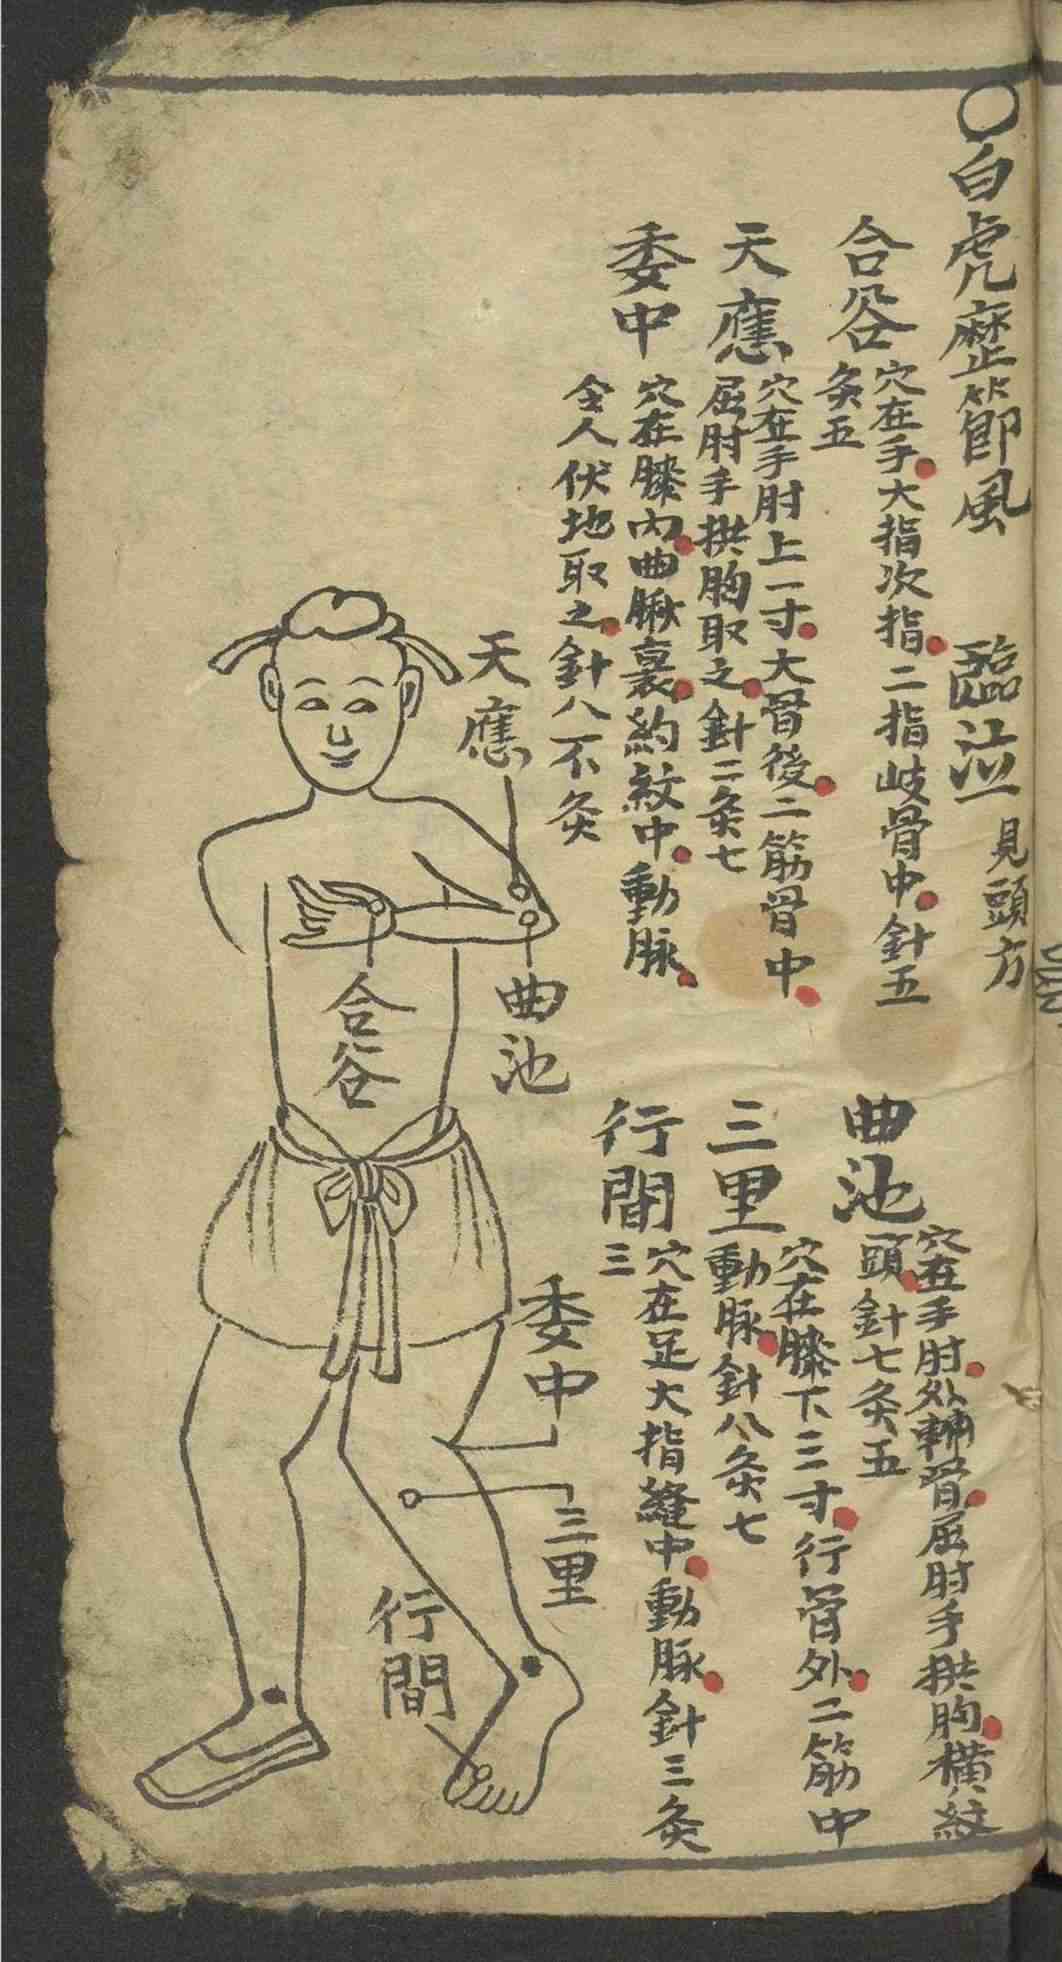 〇白虎歷節風　臨泣見頭方
合谷
穴在手大指次指二指岐骨中針五
灸五
曲池
穴在手肘外輔骨屈肘手拱胸橫紋
頭針七灸五
天應
穴在手肘上一寸大骨後二筋骨中
屈肘手拱胸取之針二灸七
三里
穴在膝下三寸行骨外二筋中
動脉針八灸七
委中
穴在膝內曲䐐裏約紋中動脉
令人伏地取之針八不灸
行間
穴在足大指縫中動脉針三灸
三
天應
曲池
合谷
委中
三里
行間